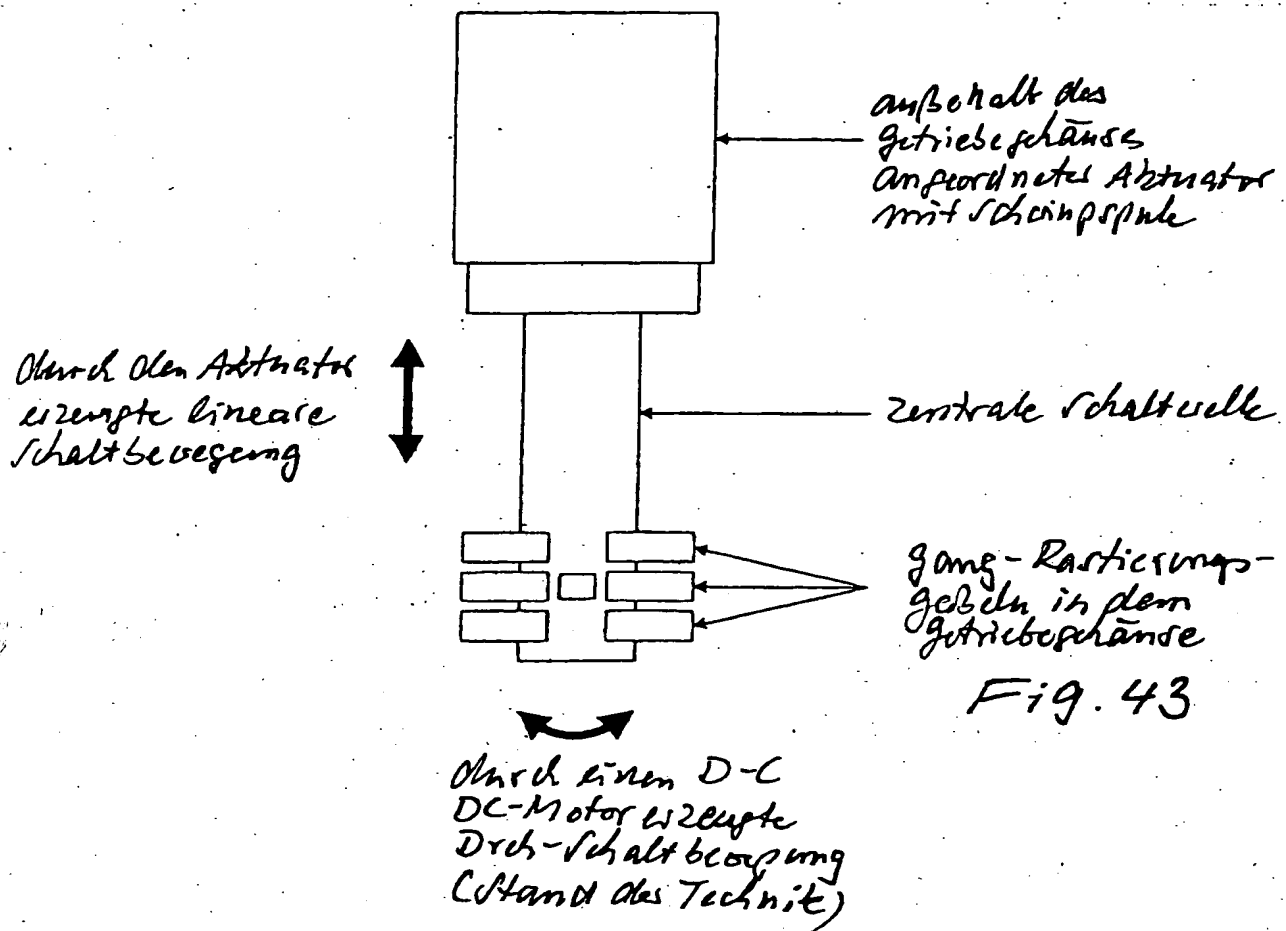 außerhalb des
Getriebegehäuses
angeordneter Aktuator
mit Schwingspule
durch den Aktuator
erzeugte lineare
Schaltbewegung
zentrale Schaltwelle
Gang-Rastierungs-
gabeln in dem
Getriebegehäuse
Fig. 43
durch einen D-C
DC-Motor erzeugte
Dreh-Schaltbewegung
(Stand der Technik)